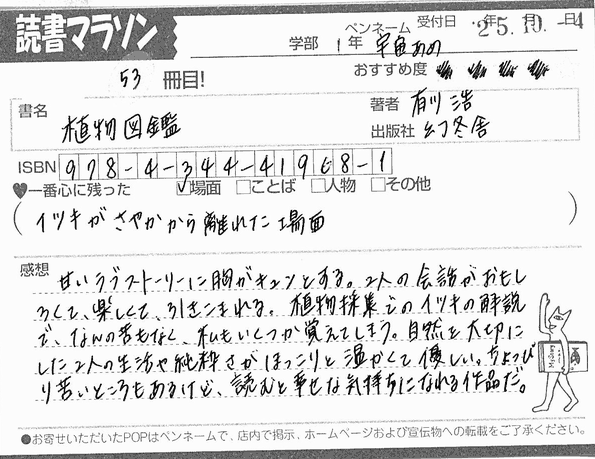 読書マラソン
学部 1年 ペンネーム 宇宙あめ 受付日 '25.10.-4
年 月 日
53 冊目!
おすすめ度
書名 植物図鑑
著者 有川浩
出版社 幻冬舎
ISBN 978-4-344-41968-1
♥一番心に残った ☑場面 □ことば □人物 □その他
(イツキがさやかから離れた場面)
感想
甘いラブストーリーに胸がキュンとする。2人の会話がおもし
ろくて、楽しくて、引きこまれる。植物採集でのイツキの解説
で、なんの苦もなく、私もいくつか覚えてしまう。自然を大切に
した2人の生活や純粋さがほっこりと温かくて優しい。ちょっぴ
り苦いところもあるけど、読むと幸せな気持ちになれる作品だ。
●お寄せいただいたPOPはペンネームで、店内で掲示、ホームページおよび宣伝物への転載をご了承ください。